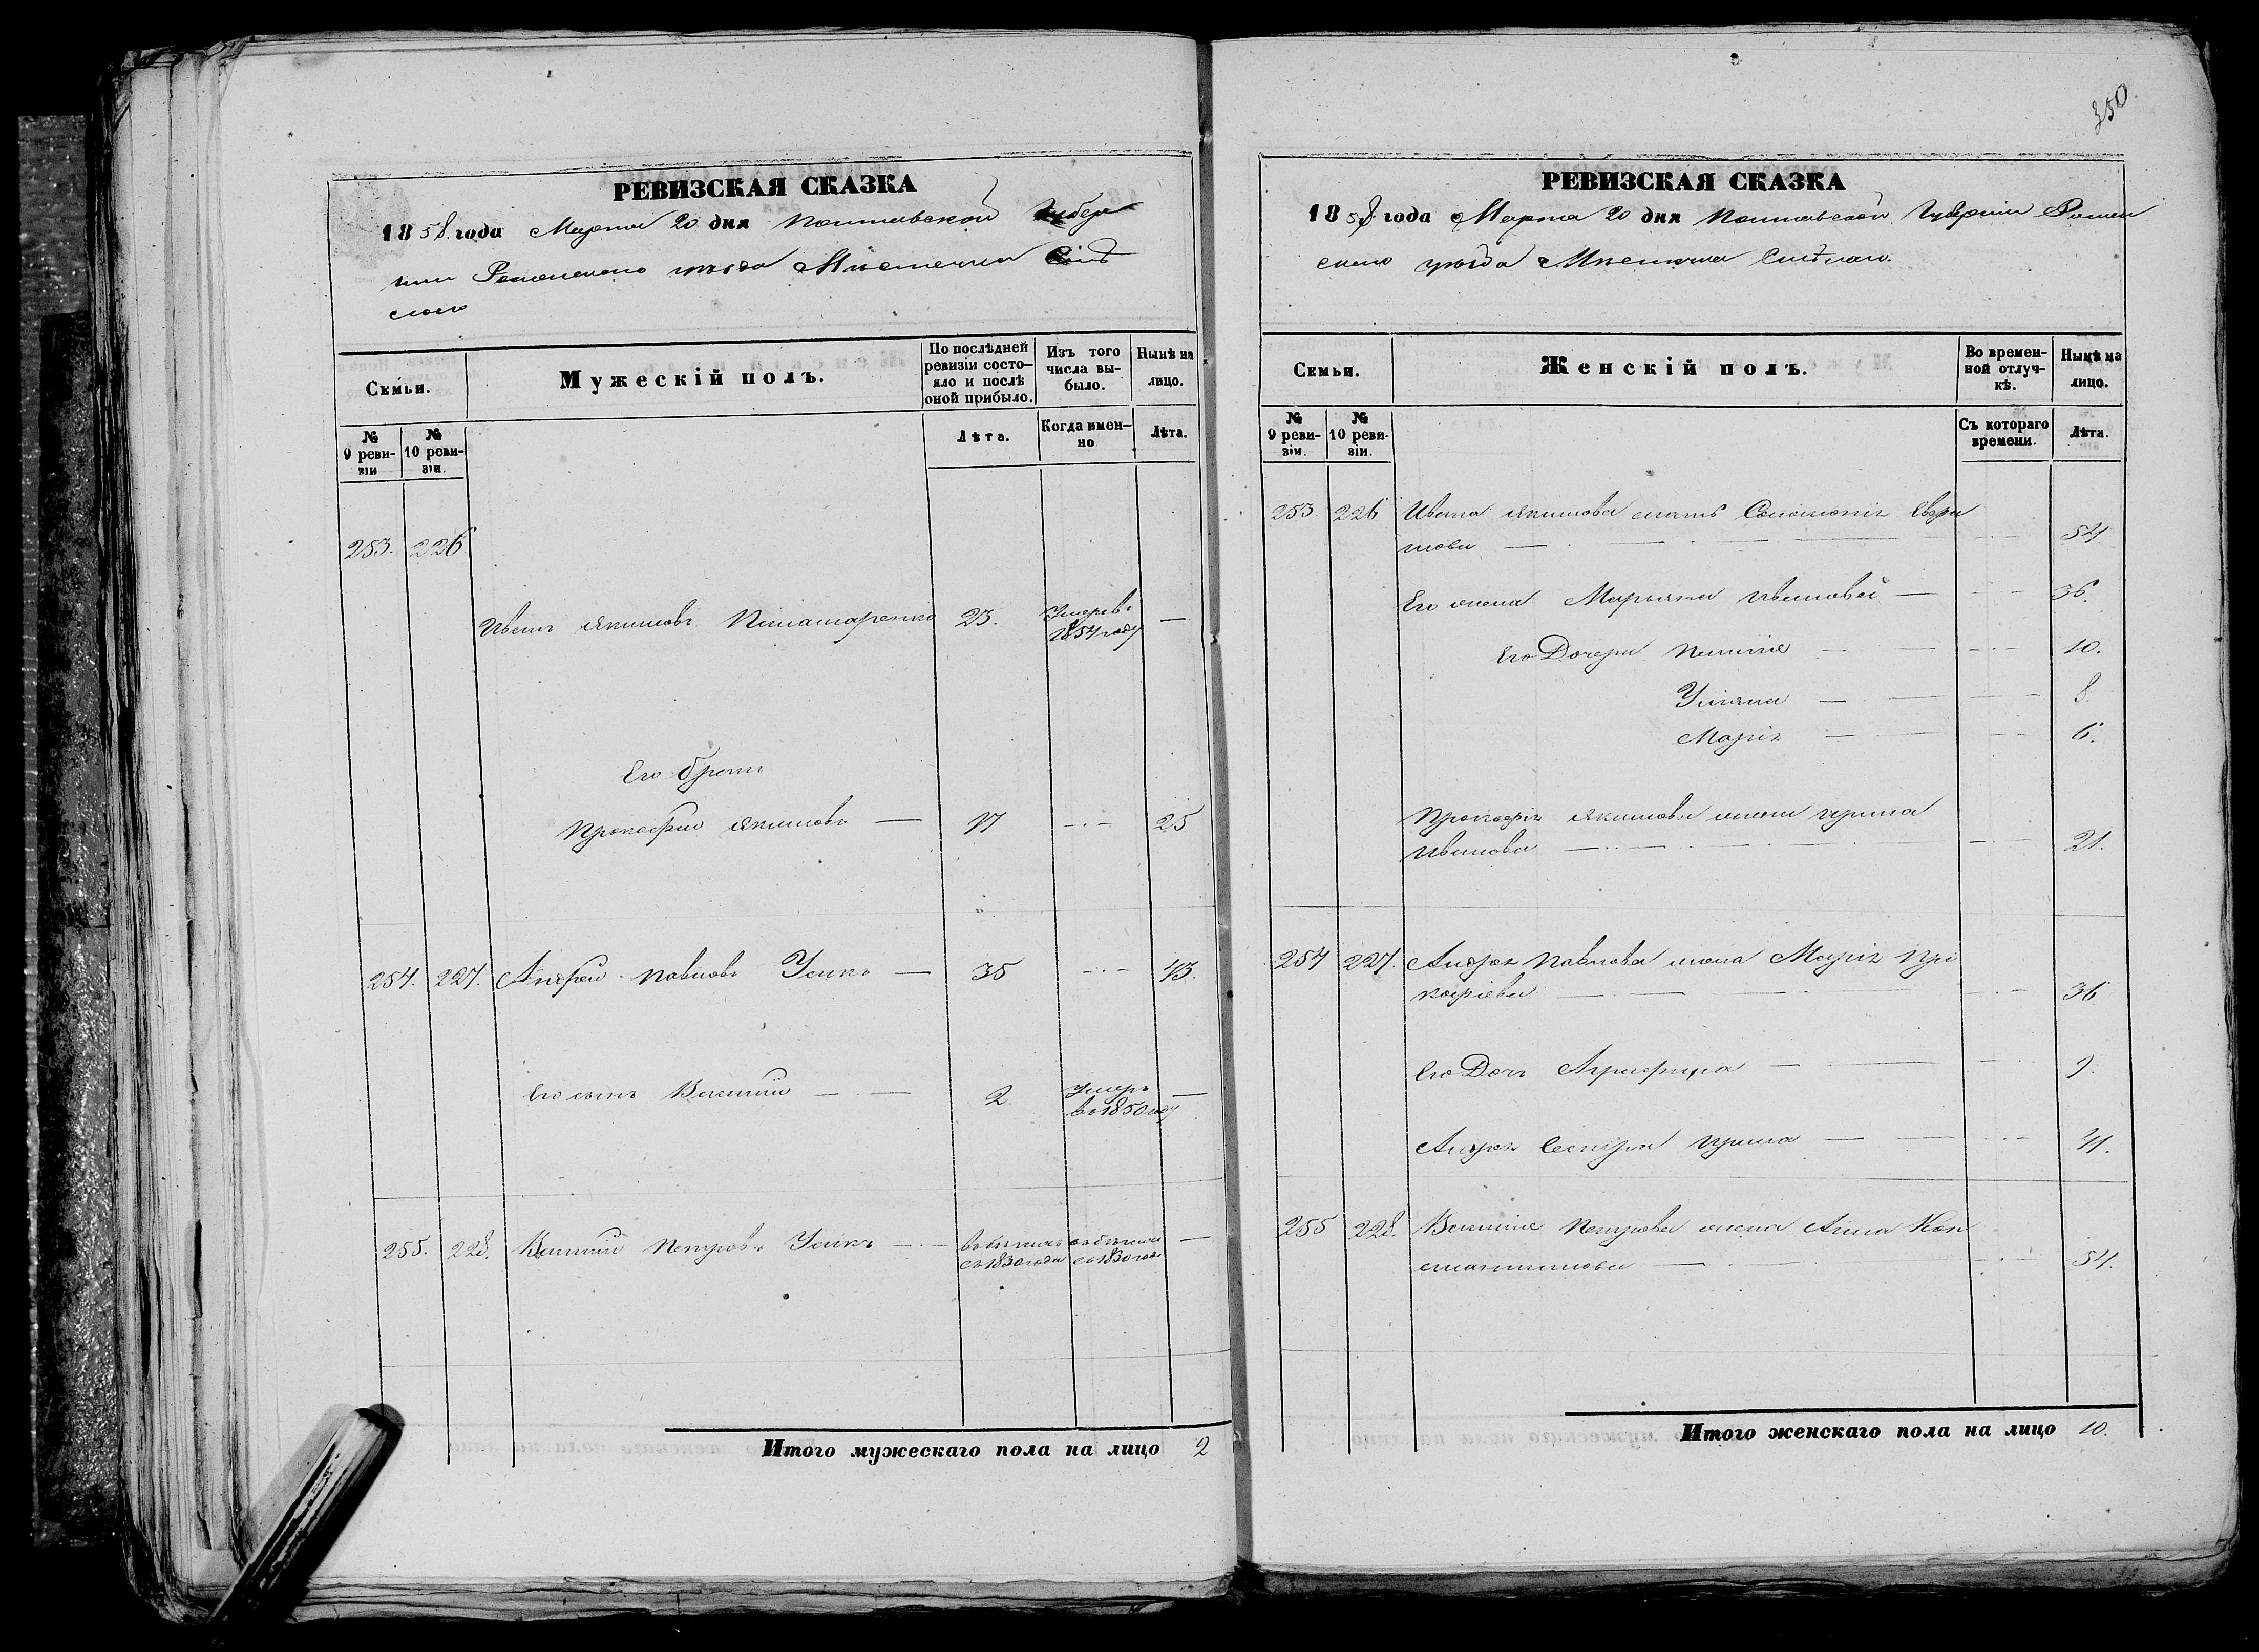 РЕВИЗСКАЯ СКАЗКА
1858 года Марта 20 дня Полтавской Губер
ніи Роменского уезда Местечка
Семьи.
Мужескій полъ.
По послѣдней ревизіи состояло и послѣ оной прибыло.
Изъ того числа выбыло.
Нынѣ на лицо.
№ 9 ревизіи
№ 10 ревизіи.
Лѣта.
Когда именно
Лѣта.
253. 226
Иванъ Якимовъ 23. Умеръ въ 1854 году —
Его братъ
Прокофий Якимовъ — 17 — 25
254. 227. Андрей Павловъ Усикъ — 35 — 43.
Его сынъ Василий — 2 Умеръ въ 1850 году —
255. 228. Василий Петровъ Усикъ — въ бегахъ съ 1830 года въ бегахъ съ 1830 года —
Итого мужескаго пола на лицо 2
350
РЕВИЗСКАЯ СКАЗКА
1858 года Марта 20 дня Полтавской Губерніи Ромен
ского уезда Местечка
Семьи.
Женскій полъ.
Во временной отлучкѣ.
Нынѣ на лицо.
№ 9 ревизіи.
№ 10 ревизіи.
Съ котораго времени.
Лѣта.
253 226 Ивана Якимова мать Соломонія
54
Его жена Марьяна Иванова — 36.
Его Дочери — 10.
Ульяна — 8.
Марія — 6.
Прокофія Якимова жена Ирина
Иванова — 21.
254 227. Андрея Павлова жена Марія Про
кофіева — 36
Его Дочь — 9.
Андрея Сестра Ирина —
255 228. Василія Петрова жена Анна Кон
стантинова — 54.
Итого женскаго пола на лицо 10.